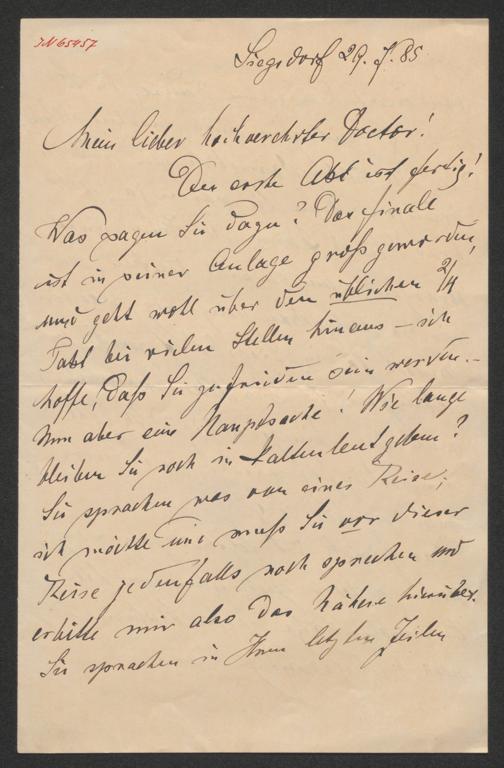 IN 65457
Siegsdorf 29. 7. 85
Mein lieber hochverehrter Doctor!
Der erste Akt ist fertig!
Was sagen Sie dazu? Das Finale
ist in seiner Anlage groß geworden,
und geht weit über den üblichen 2/4
Takt bei vielen Stellen hinaus – ich
hoffe, daß Sie zufrieden sein werden. –
Nun aber eine Hauptsache! Wie lange
bleiben Sie noch in Kaltenleutgeben?
Sie sprachen was von einer Reise;
ich möchte und muß Sie vor dieser
Reise jedenfalls noch sprechen und
erbitte mir also das Nähere hierüber.
Sie sprachen in Ihren letzten Zeilen